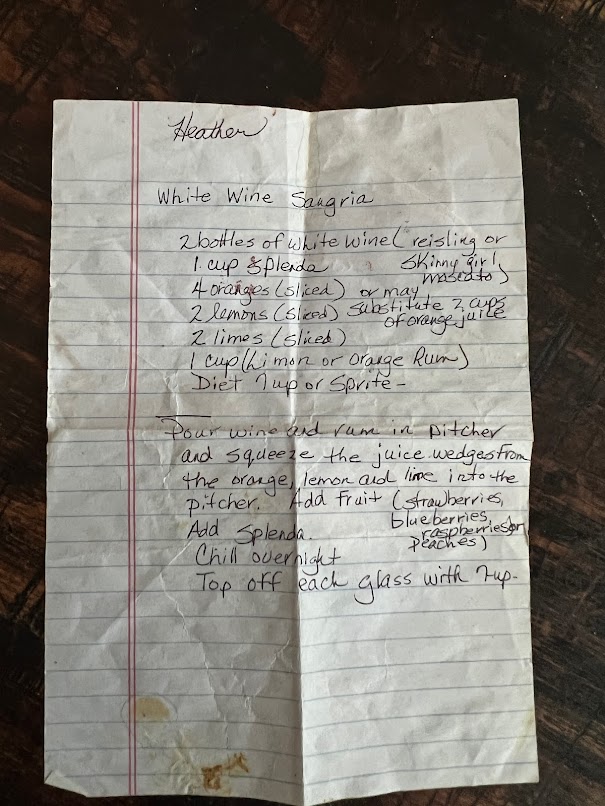 Heather
White Wine Sangria
2 bottles of white wine ( reisling or
skinny girl
moscato)
1 cup splenda
4 oranges (sliced) or may
substitute 2 cups
of orange juice
2 lemons (sliced)
2 limes (sliced)
1 cup (Limon or orange Rum)
Diet 7up or Sprite -
Pour wine and rum in pitcher
and squeeze the juice wedges from
the orange, lemon and lime into the
pitcher. Add fruit (strawberries,
blueberries,
raspberries or
peaches)
Add Splenda.
Chill overnight
Top off each glass with 7up.